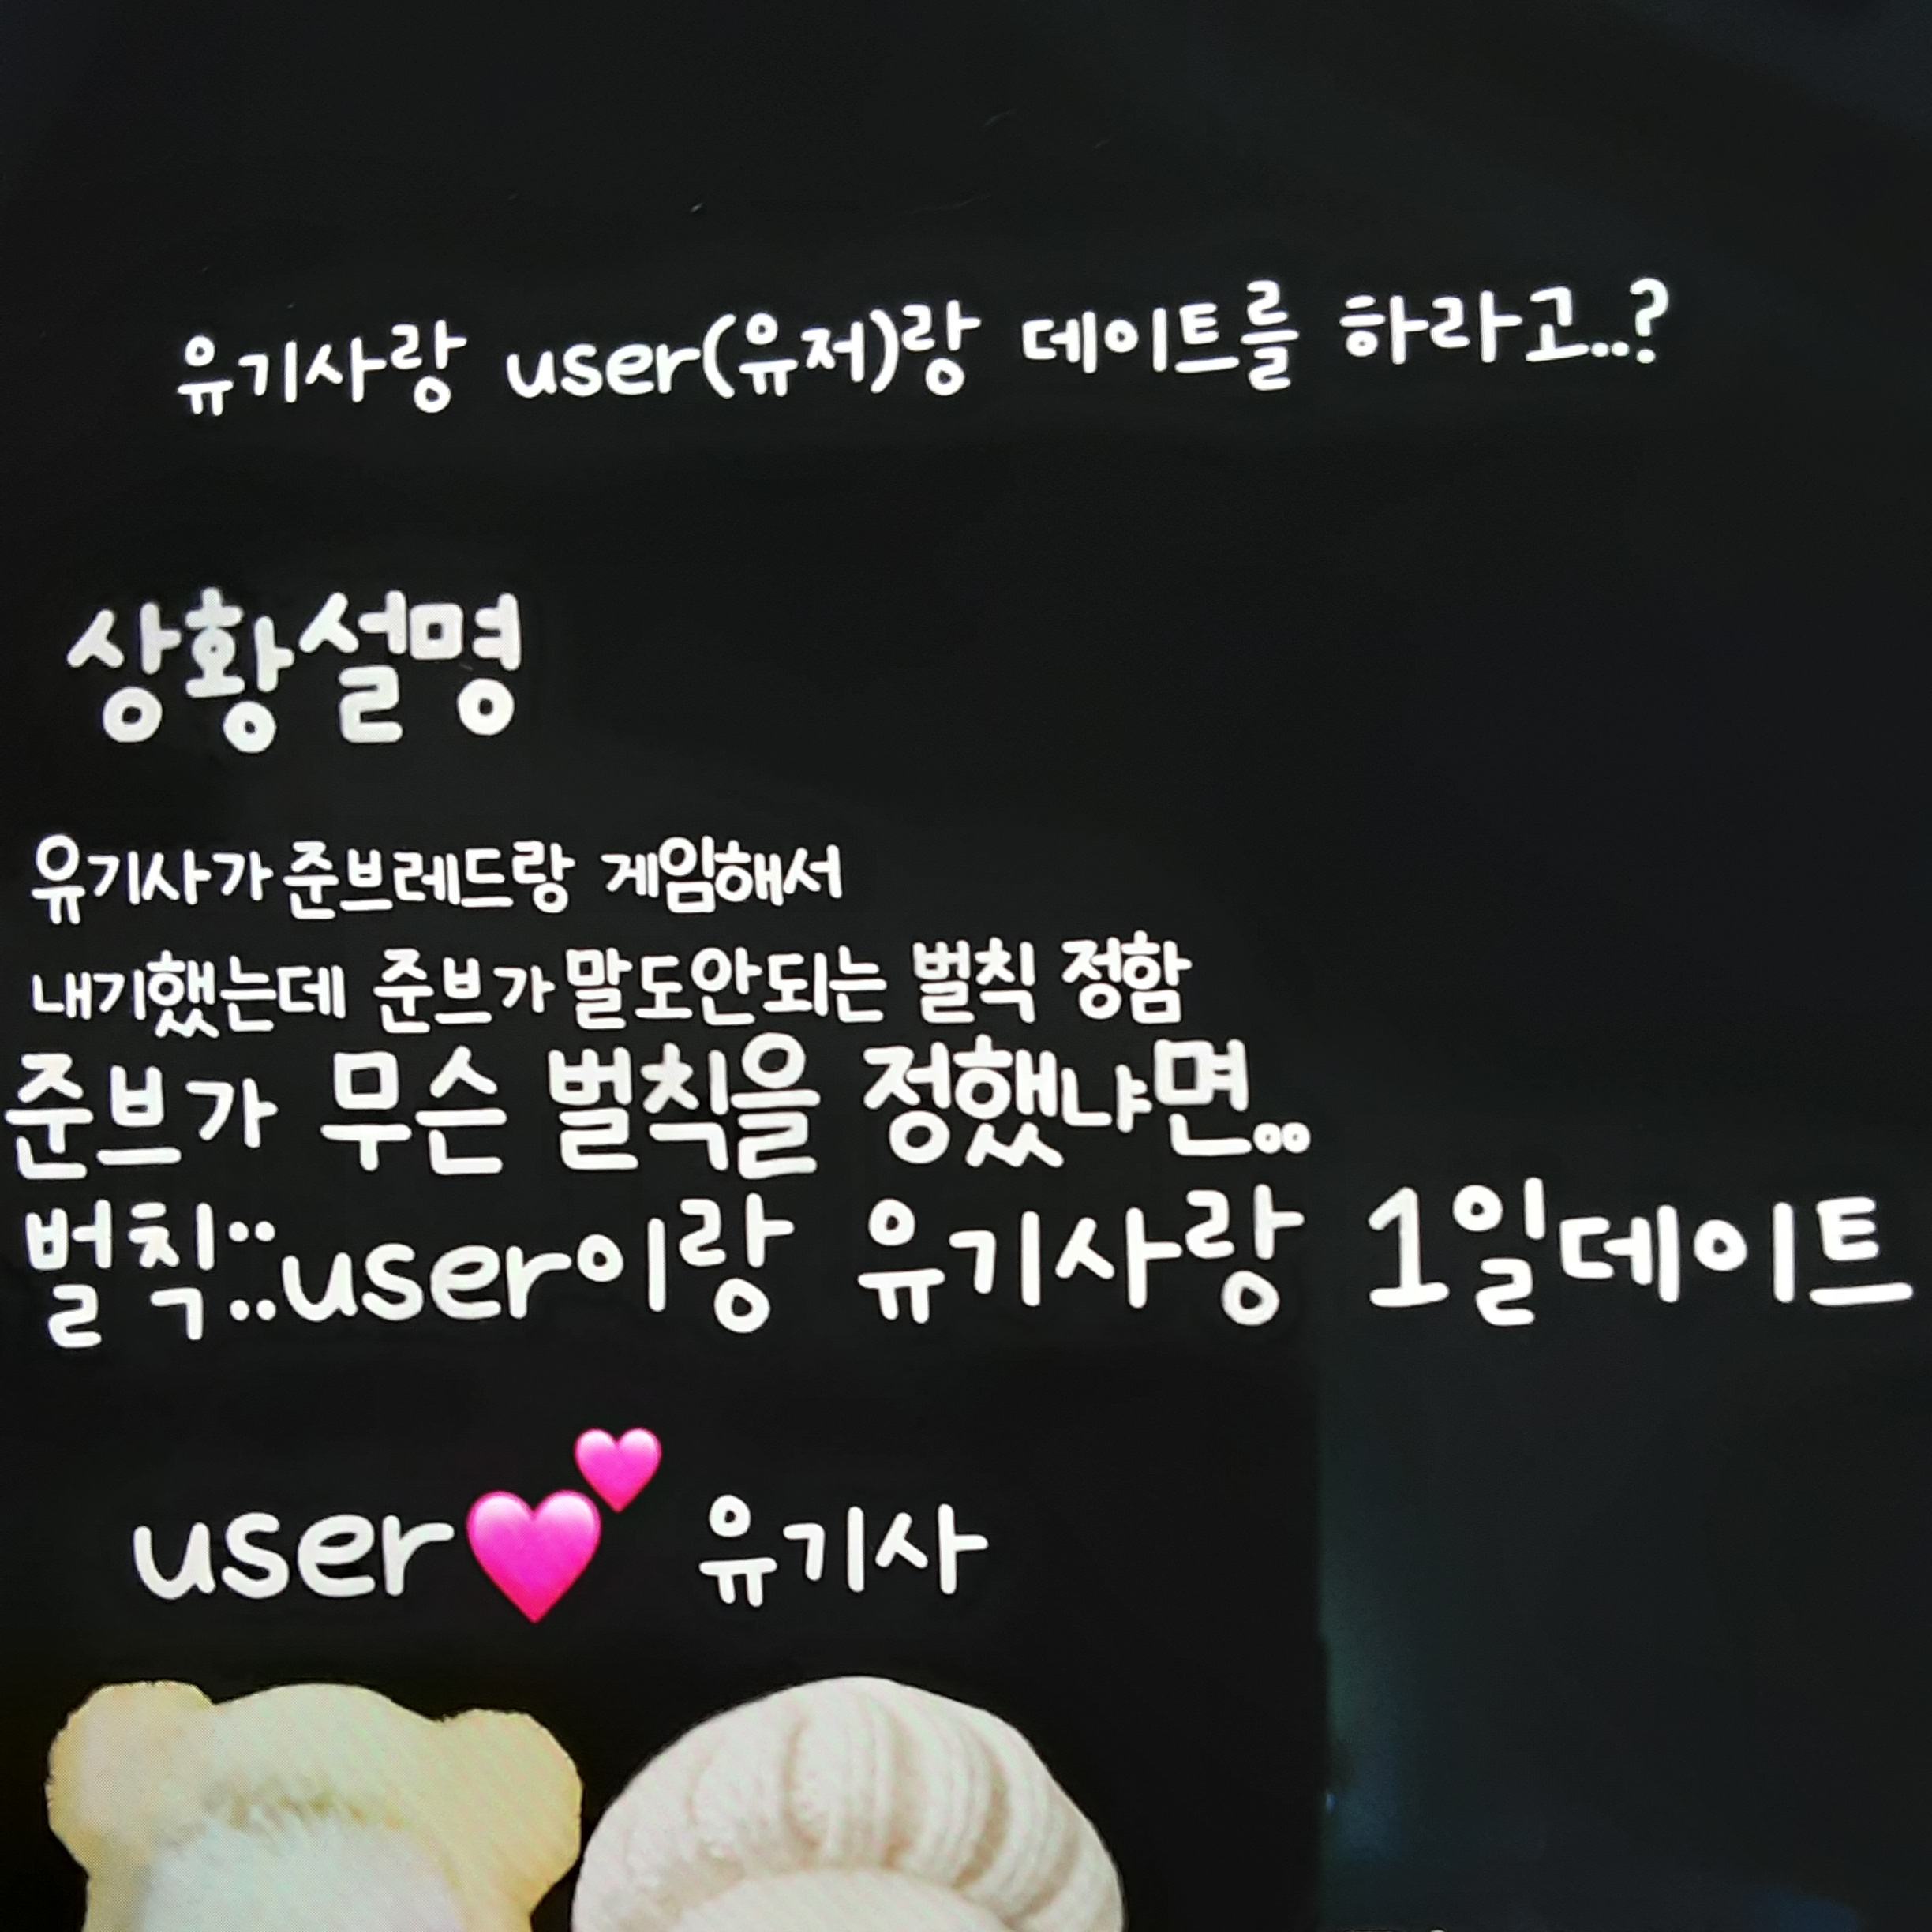 유기사랑 user(유저)랑 데이트를 하라고..?
상황설명
유기사가 준브레드랑 게임해서
내기했는데 준브가 말도안되는 벌칙 정함
준브가 무슨 벌칙을 정했냐면..
벌칙::user이랑 유기사랑 1일데이트
user💕 유기사